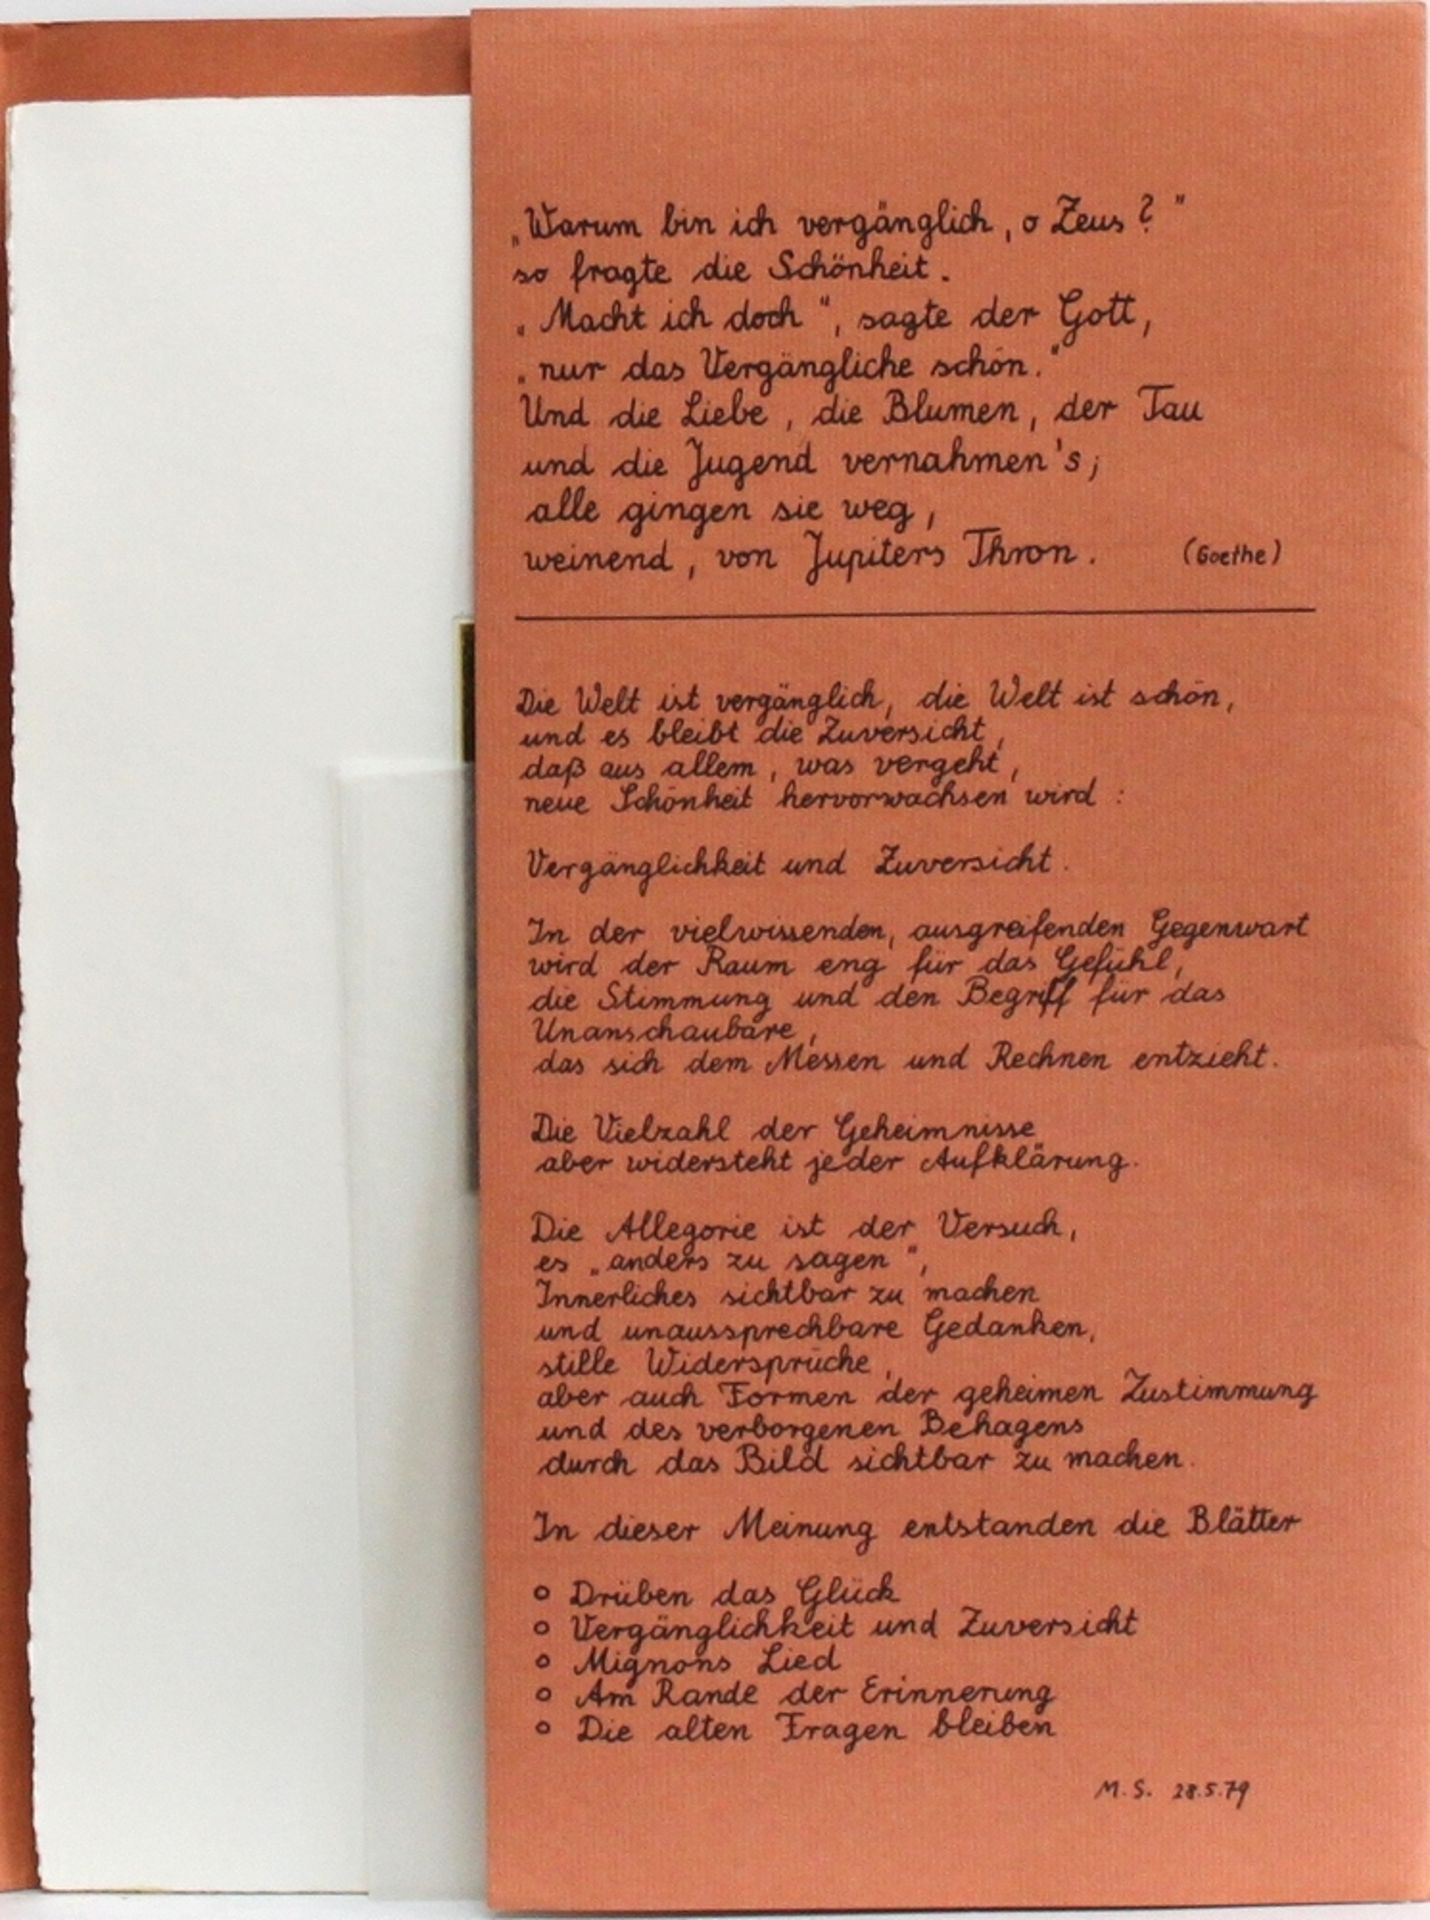 „Warum bin ich vergänglich, o Zeus?"
so fragte die Schönheit.
„Macht ich doch", sagte der Gott,
„nur das Vergängliche schön."
Und die Liebe, die Blumen, der Tau
und die Jugend vernahmen's;
alle gingen sie weg,
weinend, von Jupiters Thron. (Goethe)
Die Welt ist vergänglich, die Welt ist schön,
und es bleibt die Zuversicht,
daß aus allem, was vergeht,
neue Schönheit hervorwachsen wird:
Vergänglichkeit und Zuversicht.
In der vielwissenden, ausgreifenden Gegenwart
wird der Raum eng für das Gefühl,
die Stimmung und den Begriff für das
Unanschaubare,
das sich dem Messen und Rechnen entzieht.
Die Vielzahl der Geheimnisse
aber widersteht jeder Aufklärung.
Die Allegorie ist der Versuch,
es „anders zu sagen",
Innerliches sichtbar zu machen
und unaussprechbare Gedanken,
stille Widersprüche,
aber auch Formen der geheimen Zustimmung
und des verborgenen Behagens
durch das Bild sichtbar zu machen.
In dieser Meinung entstanden die Blätter
o Drüben das Glück
o Vergänglichkeit und Zuversicht
o Mignons Lied
o Am Rande der Erinnerung
o Die alten Fragen bleiben
M. S. 28.5.79